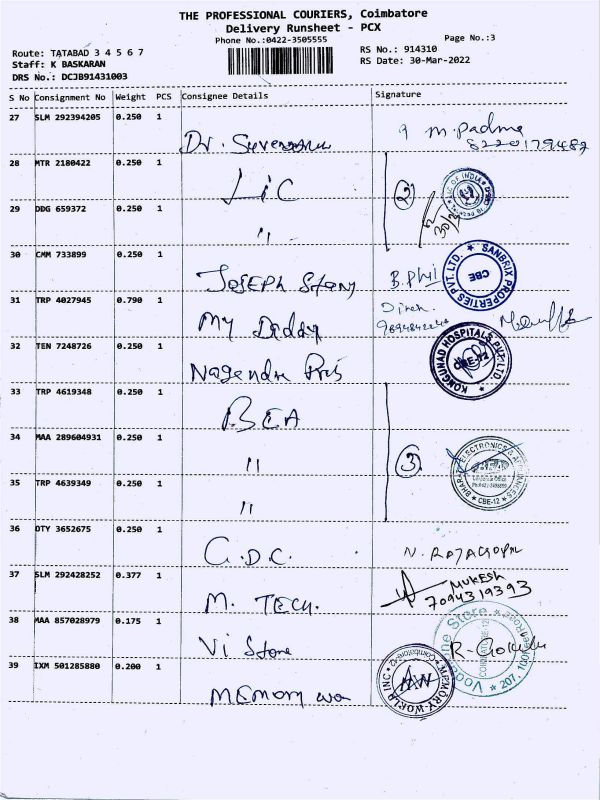 THE PROFESSIONAL COURIERS, Coimbatore
Delivery Runsheet - PCX
Phone No.:0422-3505555
Page No.:3
Route: TATABAD 3 4 5 6 7
RS No.: 914310
Staff: K BASKARAN
RS Date: 30-Mar-2022
DRS No.: DCJB91431003
S No Consignment No Weight PCS Consignee Details Signature
27 SLM 292394205 0.250 1
Dr. m. Padma
28 MTR 2180422 0.250 1
LiC 2
29 DDG 659372 0.250 1
"
30 CMM 733899 0.250 1
JOSEPH
SANBRIX PROPERTIES PVT. LTD. CBE
31 TRP 4027945 0.790 1
My Daddy
32 TEN 7248726 0.250 1
Nagendra
KONGUNAD HOSPITALS PVT. LTD. CBE-12
33 TRP 4619348 0.250 1
BEA
34 MAA 289604931 0.250 1
" 3
35 TRP 4639349 0.250 1
"
36 DTY 3652675 0.250 1
G.D.C. N. RAJAGOPAL
37 SLM 292428252 0.377 1
M. TECH. MUKESH
7094319393
38 MAA 857028979 0.175 1
Vi Store
39 IXM 501285880 0.200 1
MEMORY
MEMORY WORLD INC